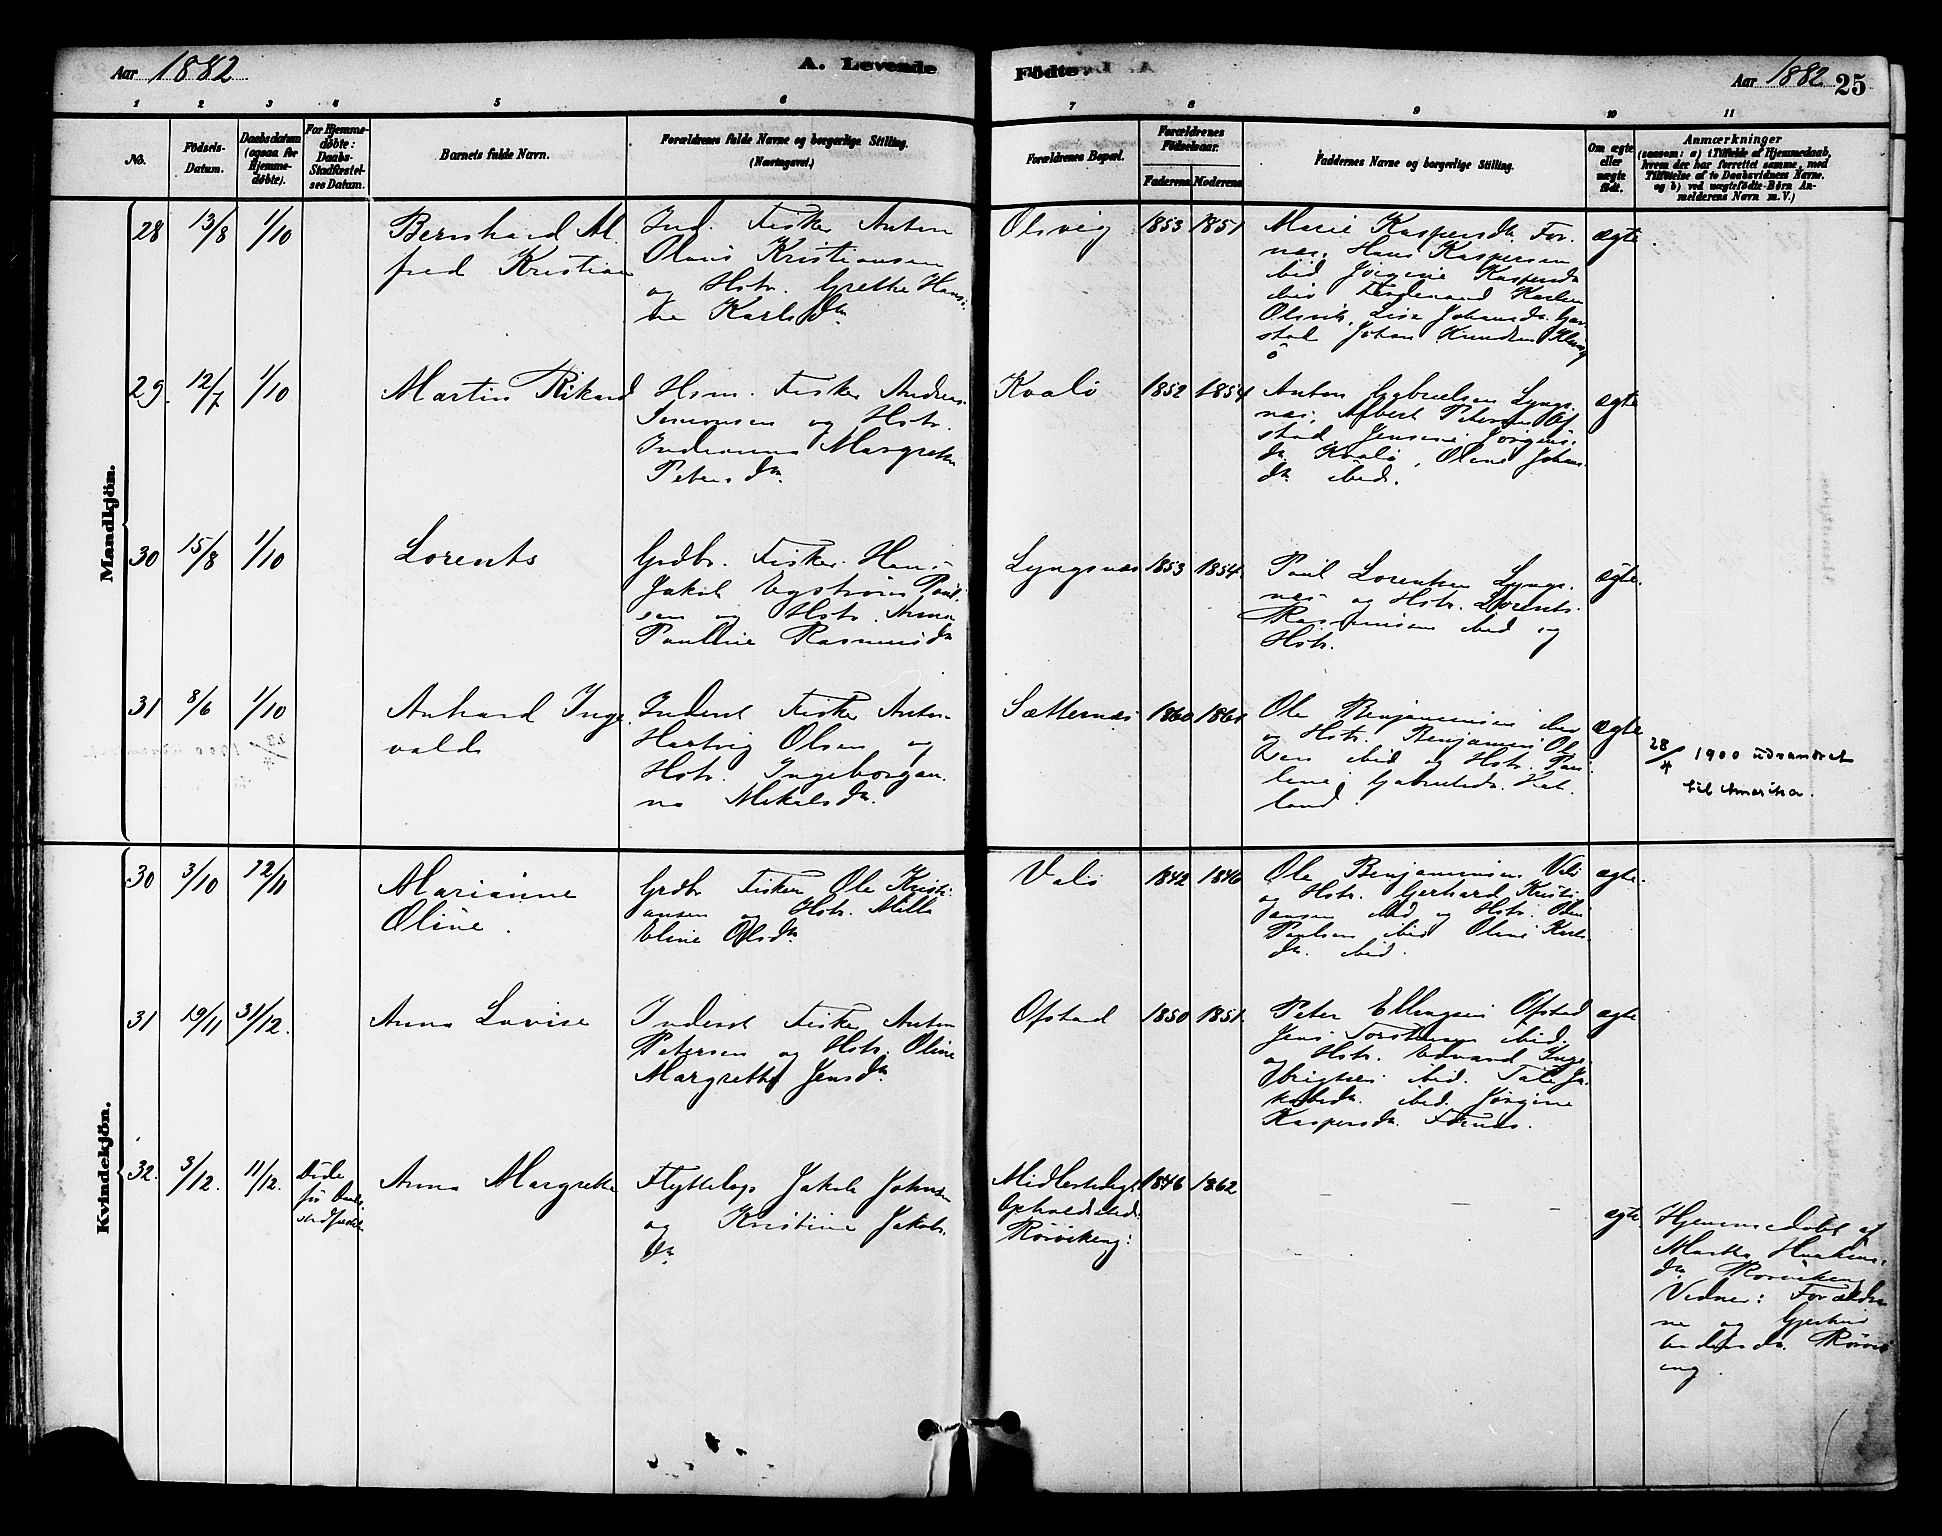 Aar 1882
A. Levende
Fødte.
Aar 1882
25
1 2 3 4 5 6 7 8 9 10 11
No.
Fødsels-
Datum.
Daabsdatum
(ogsaa for
Hjemme-
døbte).
For Hjemme-
døbte:
Daabs-
Stadfæstel-
ses Datum.
Barnets fulde Navn.
Forældrenes fulde Navne og borgerlige Stilling.
(Næringsvei.)
Forældrenes Bopæl.
Forældrenes
Fødselsaar.
Faderens
Moderens
Faddernes Navne og borgerlige Stilling.
Om ægte
eller
uægte
født.
Anmærkninger
(saasom: a) i Tilfælde af Hjemmedaab,
hvem der har forrettet samme, med
Tilføielse af to Daabsvidners Navne,
og b) ved uægtefødte Børn An-
melderens Navn m. V.)
Mandkjön.
28 13/8 1/10
Bernhard Al
fred Kristian
Ind. Fisker Anton
Olaus Kristiansen
og Hstr. Grethe Hans
ne Karlsdtr.
Olsvig 1853 1851
Marie Kaspersdtr. For
næs. Hans Kaspersen
ibid Jørgine Kaspersdtr
ibid Ferdinand Karlsen
Olsvik, Lise Johansdtr.
stad Johan Knudsen
ö
ægte.
29. 12/7 1/10
Martin Rikard
Hsm. Fisker Andreas
Simonsen og Hstr.
Margrethe
Petersdtr.
Kvalö 1852 1854
Anton Gabrielsen Lyngs
næs. Albert Petersen Of
stad. Jensine Jørgens
dtr. Kvalö, Oline Johans
dtr. ibid.
ægte
30 15/8 1/10
Lorents
Grdbr. Fisker Hans
Jakob Paul
sen og Hstr. Anna
Pauline Rasmusdtr
Lyngsnæs 1853 1854.
Paul Lorentsen Lyngs
næs og Hstr. Lorents
Rasmussen ibid og
Hstr.
ægte.
31 8/6 1/10
Anhard Inge
valds
Inderst Fisker Anton
Hartvig Olsen og
Hstr. Ingeborgan
na Mekalsdtr.
Sætternæs 1860 1861
Ole Benjaminsen ibid
og Hstr. Benjamin Ol
sen ibid og Hstr. Pau
line Gabrielsdtr. Hat
land.
ægte
28/4 1900 udvandret
til Amerika.
Kvindekjön.
30 3/10 12/11
Marianne
Oline.
Grdbr Fisker Ole Kristi
ansen og Hstr. Milla
Eline Olsdtr.
Valö 1842 1846
Ole Benjaminsen Valö
og Hstr. Gerhard Kristi
ansen ibid og Hstr. Ole
Paulsen ibid Oline Karls
dtr. ibid.
ægte.
31 19/11 31/12.
Anna Lovise
Inderst Fisker Anton
Petersen og Hstr. Oline
Margrethe Jensdtr.
Ofstad 1850 1851.
Peter Ellingsen Ofstad
Jens Torstensen ibid.
og Hstr. Edvard Inge
brigtsen ibid. Tale Ja
kobsdtr. ibid. Jørgine
Kaspersdtr. Fornæs.
ægte
32. 3/12. 11/12.
Døde
før Daabs
stadfæstel
Anna Margrethe
Flyttelap Jakob Johnsen
og Kristine Jakobs
dtr.
Midlertidigt
Opholdssted:
Rörvikeng: 1846 1862
ægte.
Hjemmedøbt af
Martha
dtr. Rörvikeng
Vidner: Forældre
ne og
Andersdtr. Rörvik
eng.